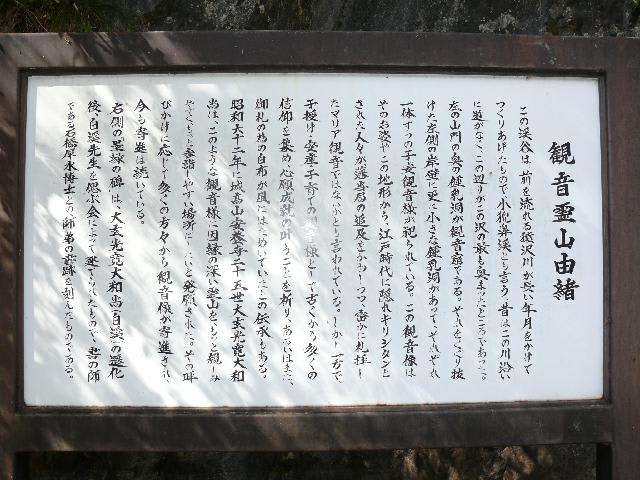 観音霊山由緒
この渓谷は前を流れる猿沢川が長い年月をかけて
つくりあげたもので小猊鼻渓とも言う。昔はこの川沿い
に道がなく、この辺りがこの沢の最も奥まったところであった。
左の山門の奥の鍾乳洞が観音窟である。それをくぐり抜
けた左側の岸壁に更に小さな鍾乳洞があって、それぞれ
一体ずつの子安観音様が祀られている。この観音像は
そのお姿やこの地形から、江戸時代に隠れキリシタンと
された人々が藩当局の追及をかわしつつ、密かに礼拝し
たマリア観音ではないかとも言われている。しかし一方で、
子授け・安産・子育ての観音様として古くから多くの
信仰を集め、心願成就の叶うことを祈り、あるいはまた、
御礼の為の白布が風にはためいていたとの伝承もある。
昭和六十二年に城嘉山安養寺二十五世大玄光寛大和
尚は、このような観音様に因縁の深い霊山を、もっと親しみ
やすくもっと参詣しやすい場所にしたいと発願された。その呼
びかけに応じて多くの方々から観音像が寄進され、
今も寄進は続いている。
右側の墨縁の碑は、大玄光寛大和尚（白渓）の遷化
後、白渓先生を偲ぶ会によって建てられたもので、書の師
である石橋犀水博士との師弟の墨跡を刻んだものである。